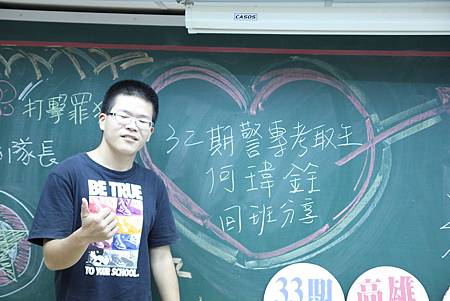 CASOS
打擊罪
隊長
32期警專考取王
何瑋銓
回班分享
BE TRUE
TO YOUR SCHOOL.
33期
高雄